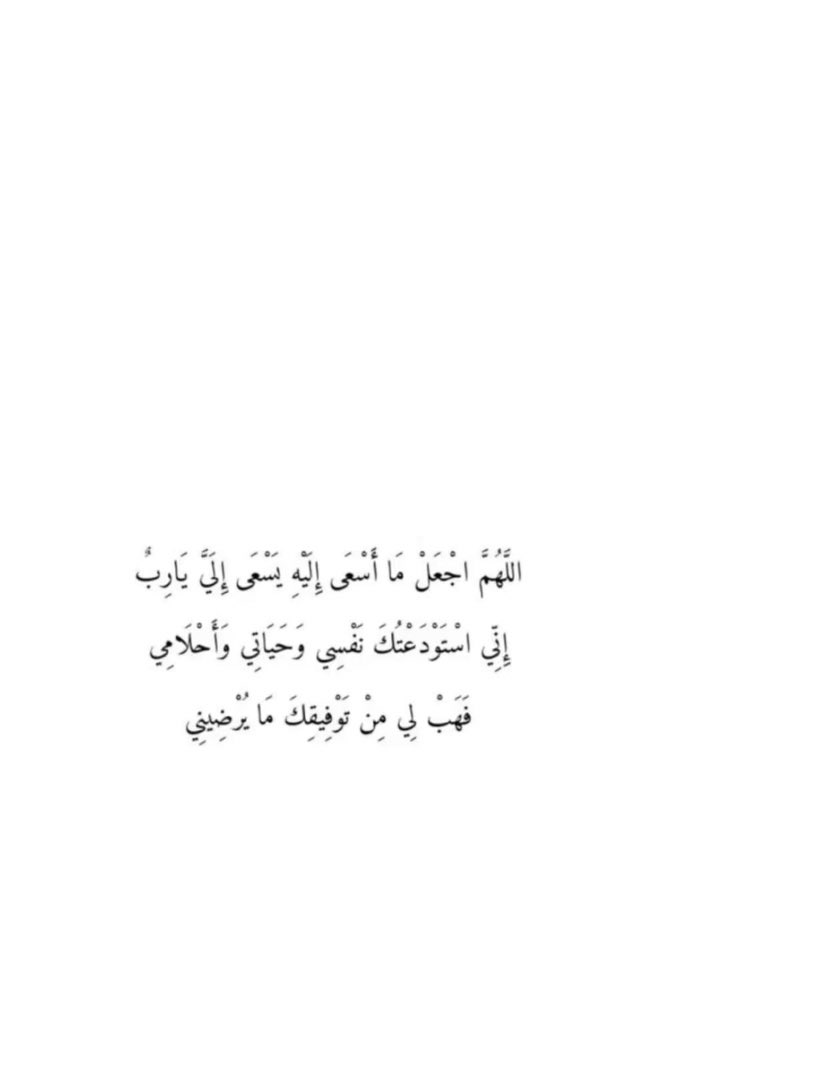 اللَّهُمَّ اجْعَلْ مَا أَسْعَى إِلَيْهِ يَسْعَى إِلَيَّ يَارِبٌ
إِنِّي اسْتَوْدَعْتُكَ نَفْسِي وَحَيَاتِي وَأَحْلَامِي
فَهَبْ لِي مِنْ تَوْفِيقِكَ مَا يُرْضِينِي